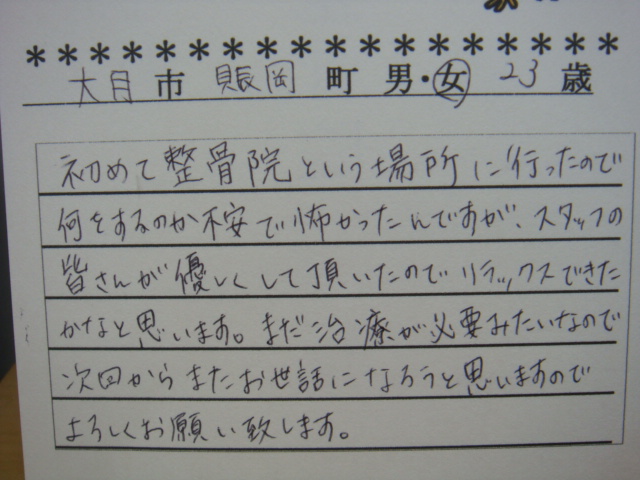 *********************
大月市 賑岡町 男・女 23歳
初めて整骨院という場所に行ったので
何をするのか不安で怖かったんですが、スタッフの
皆さんが優しくして頂いたのでリラックスできた
かなと思います。まだ治療が必要みたいなので
次回からまたお世話になろうと思いますので
よろしくお願い致します。